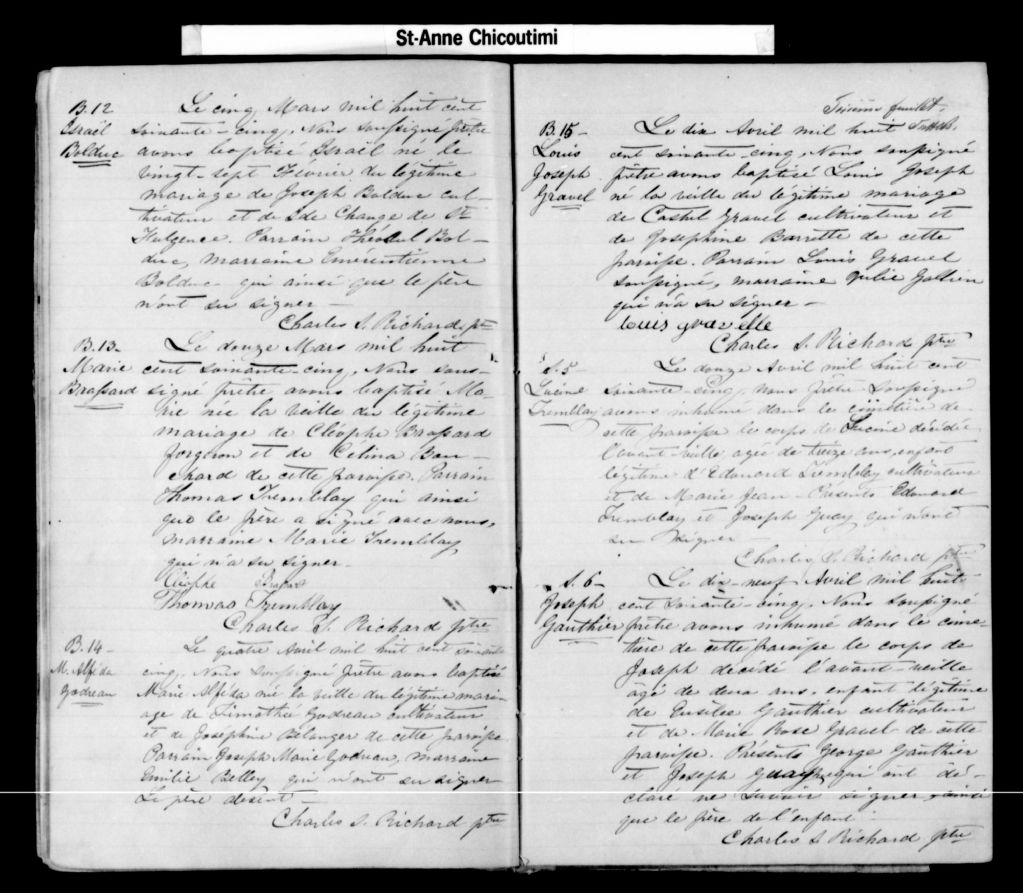 St-Anne Chicoutimi
B.12
Israël
Bolduc
Le cinq Mars mil huit cent
soixante-cinq, Nous soussigné prêtre
avons baptisé Israël né le
vingt-sept Février du légitime
mariage de Joseph Bolduc cul-
tivateur et de Ide Change de St
Fulgence. Parrain Bol-
duc, marraine Emerentienne
Bolduc qui ainsi que le père
n'ont su signer —
Charles S. Richard ptre
B.13-
Marie
Brassard
Le douze Mars mil huit
cent soixante-cinq, Nous sous-
signé prêtre avons baptisé Ma-
rie née la veille du légitime
mariage de Cléophe Brassard
forgeron et de Célina Bou-
chard de cette paroisse. Parrain
Thomas Tremblay qui ainsi
que le père a signé avec nous,
marraine Marie Tremblay
qui n'a su signer.
Cléophe
Thomas Tremblay
Charles S. Richard ptre
B.14-
M. Alféda
Godreau
Le quatre Avril mil huit cent soixante
cinq, Nous soussigné prêtre avons baptisé
Marie Alféda née la veille du légitime mari-
age de Timothé Godreau cultivateur
et de Josephine Bélanger de cette paroisse.
Parrain Joseph Marie Godreau, marraine
Emilie Belley qui n'ont su signer
Le père absent —
Charles S. Richard ptre
feuillet
B.15-
Louis
Joseph
Gravel
Le dix Avril mil huit
cent soixante-cinq, Nous soussigné
prêtre avons baptisé Louis Joseph
né la veille du légitime mariage
de Castul Gravel cultivateur et
de Josephine Barrette de cette
paroisse. Parrain Louis Gravel
soussigné, marraine Julie
qui n'a su signer —
Louis gravelle
Charles S. Richard ptre
S.5-
Lucine
Tremblay
Le douze Avril mil huit cent
soixante-cinq, nous prêtre soussigné
avons inhumé dans le cimetière de
cette paroisse le corps de Lucine décédée
l'avant-veille agée de treize ans, enfant
légitime d'Edouard Tremblay cultivateur
et de Marie Jean - Présents Edouard
Tremblay et Joseph Guay qui n'ont
su signer —
Charles S. Richard ptre
S.6-
Joseph
Gauthier
Le dix-neuf Avril mil huit
cent soixante-cinq, Nous soussigné
prêtre avons inhumé dans le cime-
tière de cette paroisse le corps de
Joseph décédé l'avant-veille
agé de deux ans, enfant légitime
de Gauthier cultivateur
et de Marie Rose Gravel de cette
paroisse. Présents George Gauthier
et Joseph Guay qui ont dé-
claré ne savoir signer ainsi
que le père de l'enfant
Charles S. Richard ptre